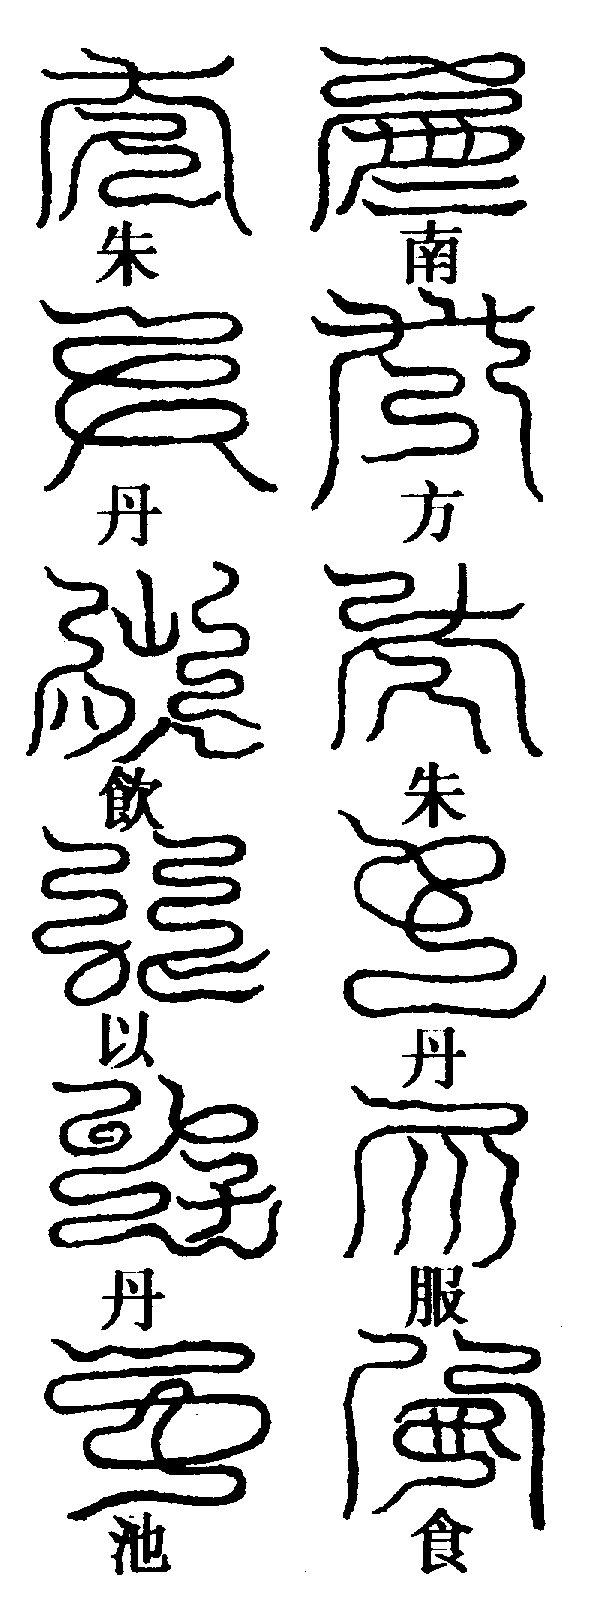 南方朱丹服食
朱丹飲以丹池